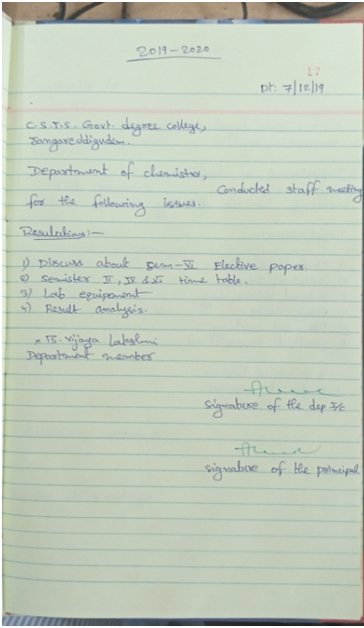 2019-2020
17
Dt: 7/12/19
C.S.T.S. Govt. degree college,
Jangareddigudem.
Department of chemistry,
Conducted staff meeting
for the following issues.
Resulections:-
1) Discuss about Sem-VI Elective paper
2) Semister II, IV & VI time table.
3) Lab equipoment
4) Result analysis.
B. Vijaya Lakshmi
Department member
signature of the dep I/c
signature of the principal